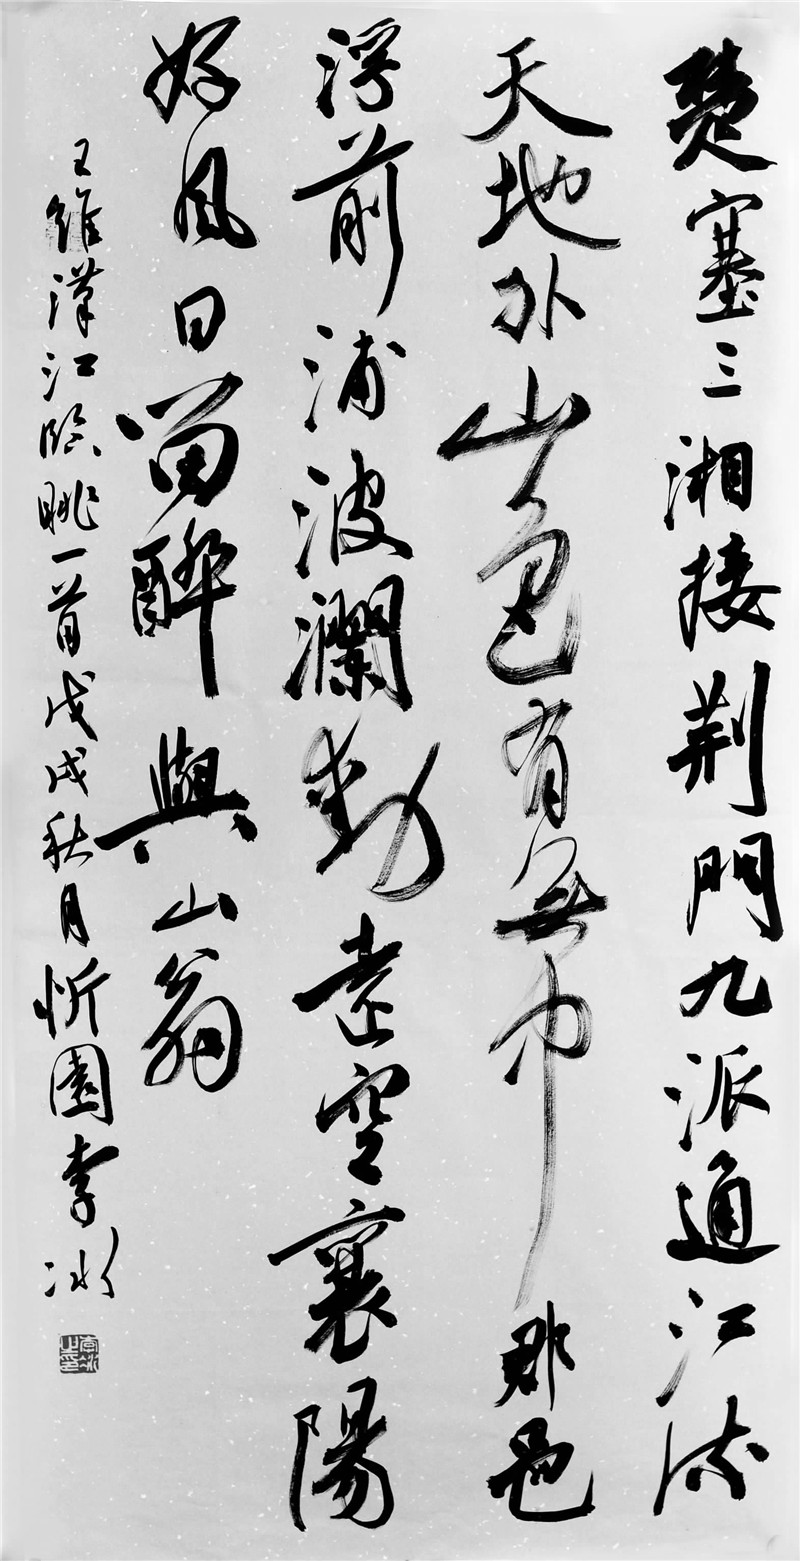 楚塞三湘接荊門九派通江流
天地外山色有無中郡邑
浮前浦波瀾動遠空襄陽
好風日留醉與山翁
王維漢江臨眺一首戊戌秋月忻園李冰
李冰之印